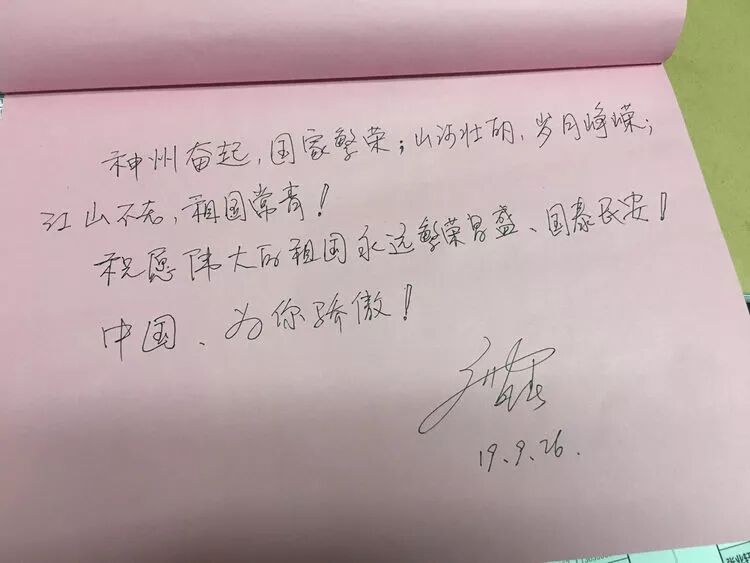 神州奋起，国家繁荣；山河壮丽，岁月峥嵘；
江山不老，祖国常青！
祝愿伟大的祖国永远繁荣昌盛、国泰民安！
中国、为你骄傲！
19.9.26.